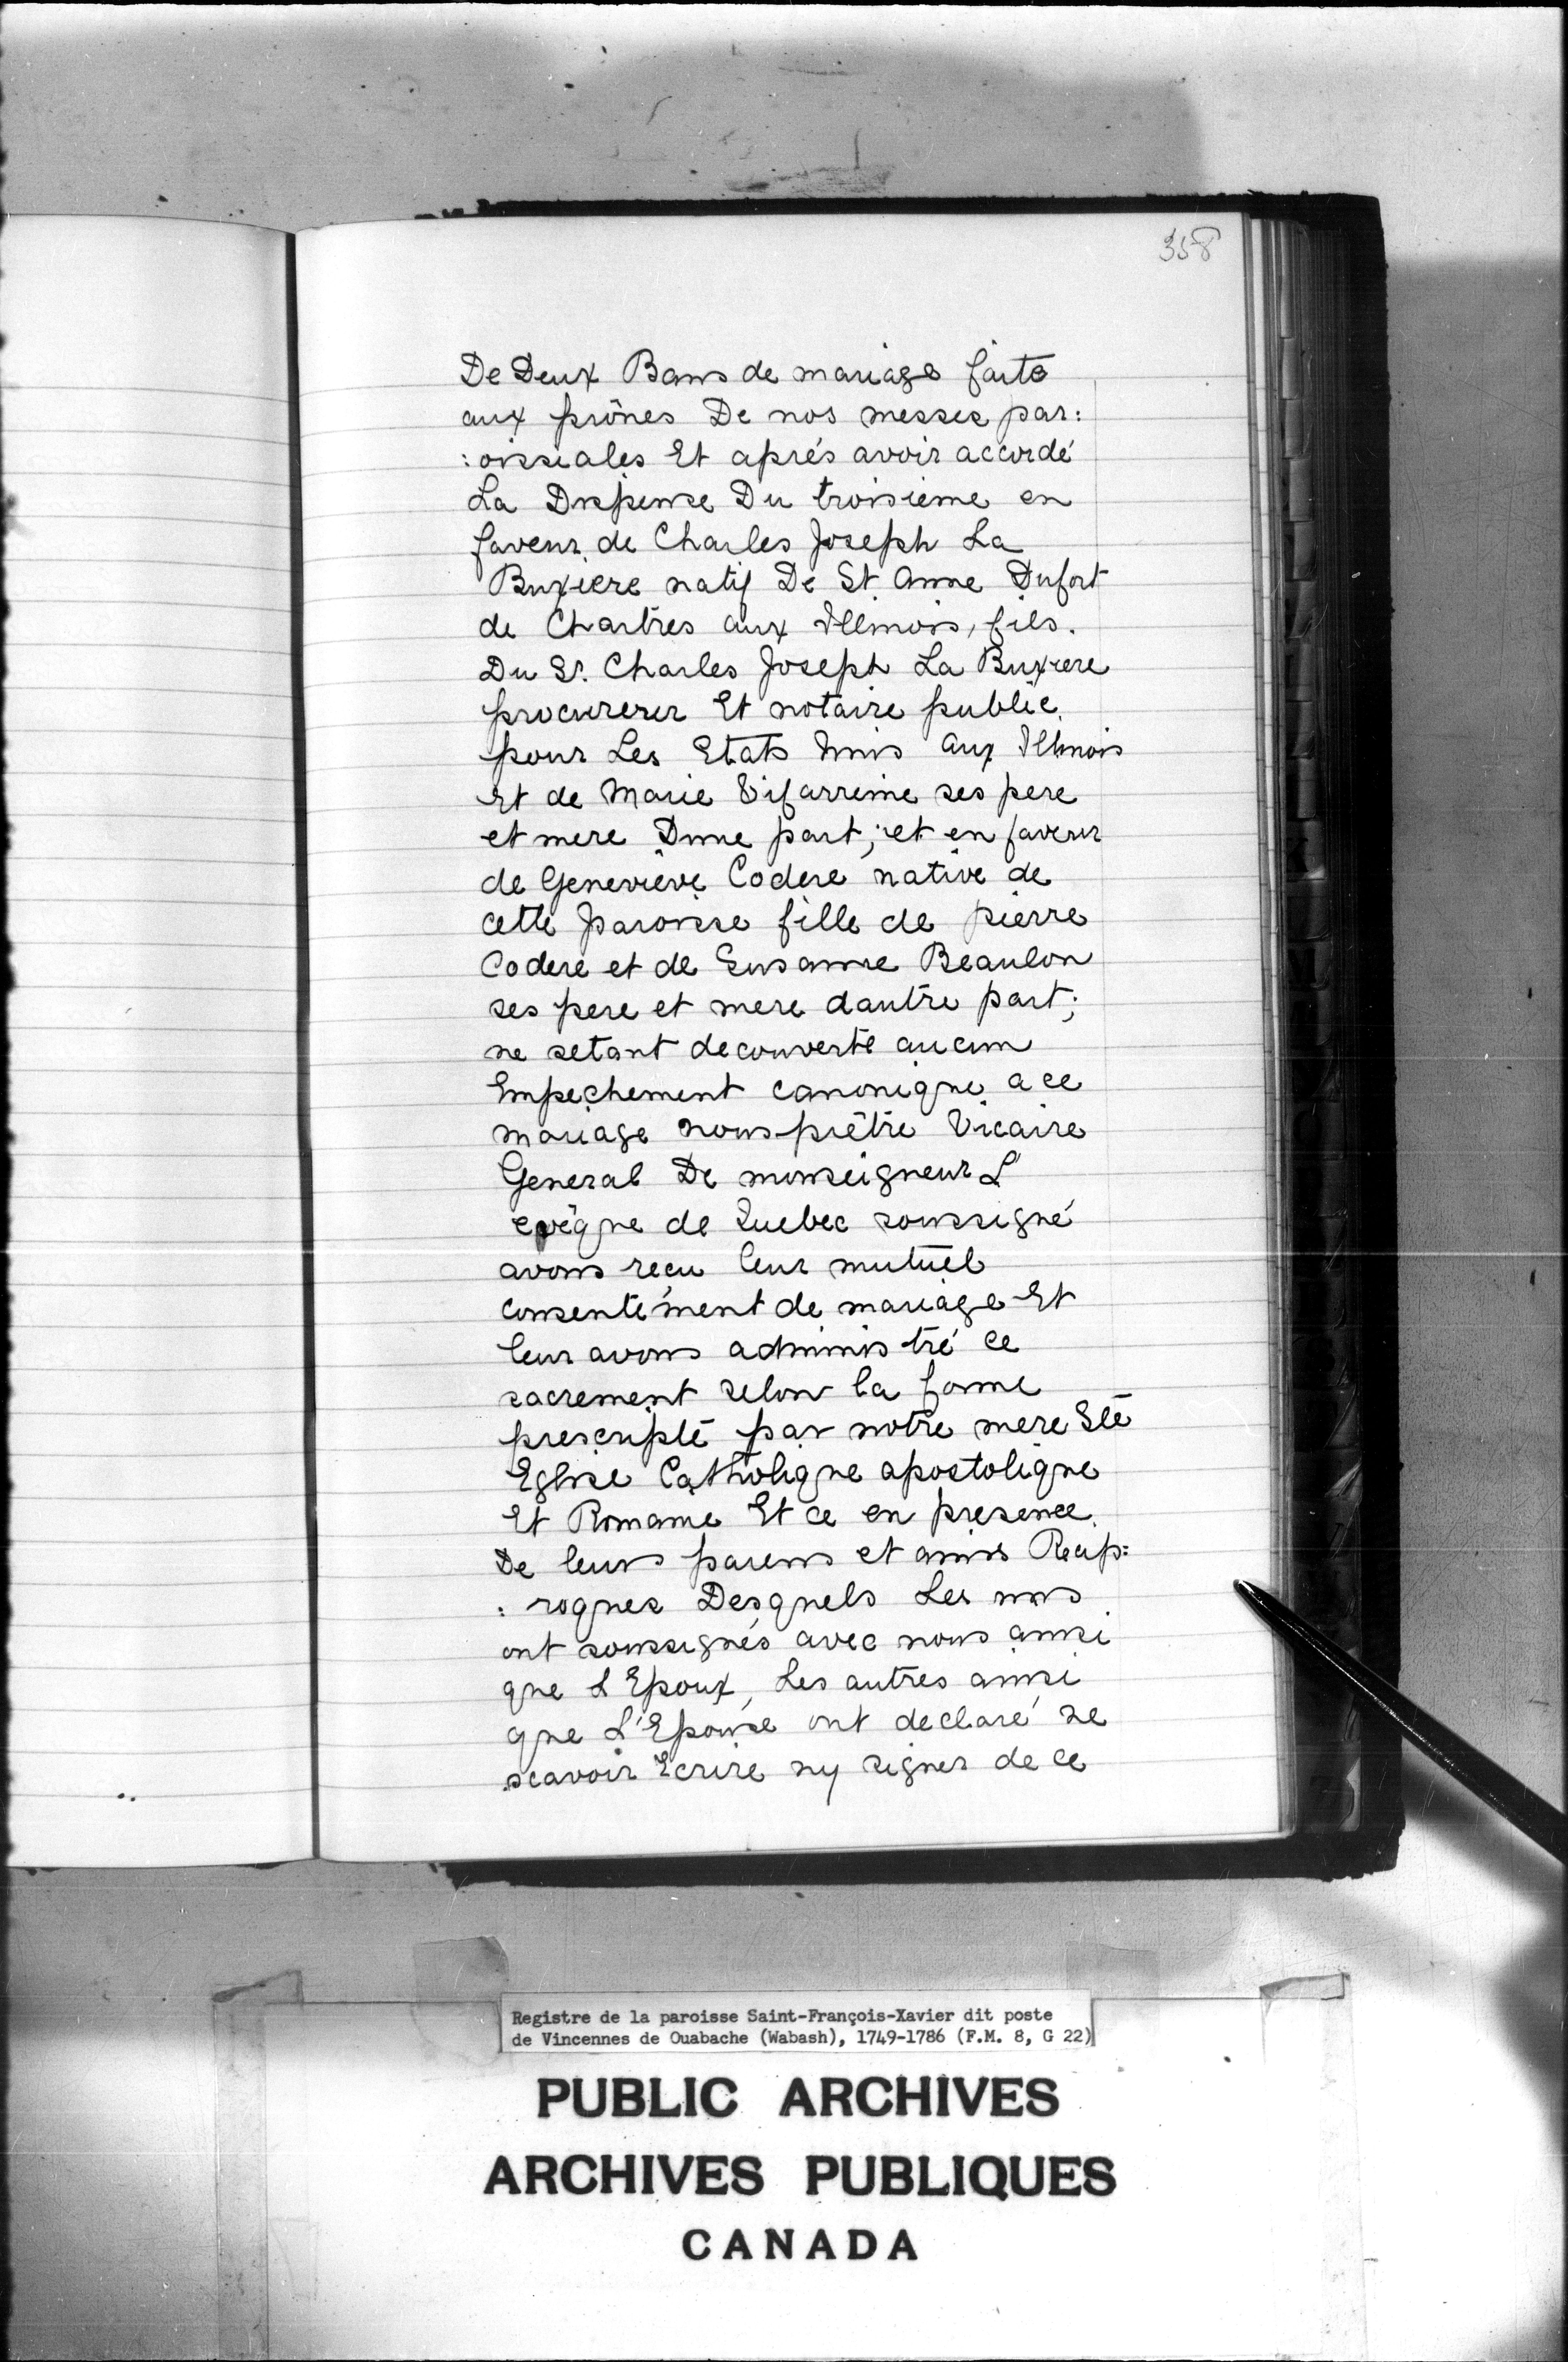 358
De Deux Bans de mariage faite
aux prônes De nos messes par:
:oissiales Et aprés avoir accordé
La Dispense Du troisieme en
faveur de Charles Joseph La
Buxiere natif De St. Anne Dufort
de Chartres aux Illinois, fils.
Du Sr. Charles Joseph La Buxiere
procureur Et notaire public
pour Les Etats Unis aux Illinois
Et de Marie Vifarreine ses pere
et mere Dune part; et en faveur
de Geneviève Codere native de
cette paroisse fille de pierre
Codere et de Susanne Beaulon
ses pere et mere dautre part;
ne setant decouverte aucun
Empechement canonique a ce
mariage nous prêtre Vicaire
General De monseigneur L'
evêque de Quebec soussigné
avons reçu leur mutuel
consentement de mariage Et
leur avons administré ce
sacrement selon la forme
prescripte par notre mere Ste
Eglise Catholique apostolique
Et Romaine Et ce en presence
De leurs parens et amis Recip:
:roques Desquels Les uns
ont soussignés avec nous ainsi
que L'Epoux, Les autres ainsi
que L'Epouse ont declaré ne
scavoir Ecrire ny signer de ce
Registre de la paroisse Saint-François-Xavier dit poste
de Vincennes de Ouabache (Wabash), 1749-1786 (F.M. 8, G 22)
PUBLIC ARCHIVES
ARCHIVES PUBLIQUES
CANADA